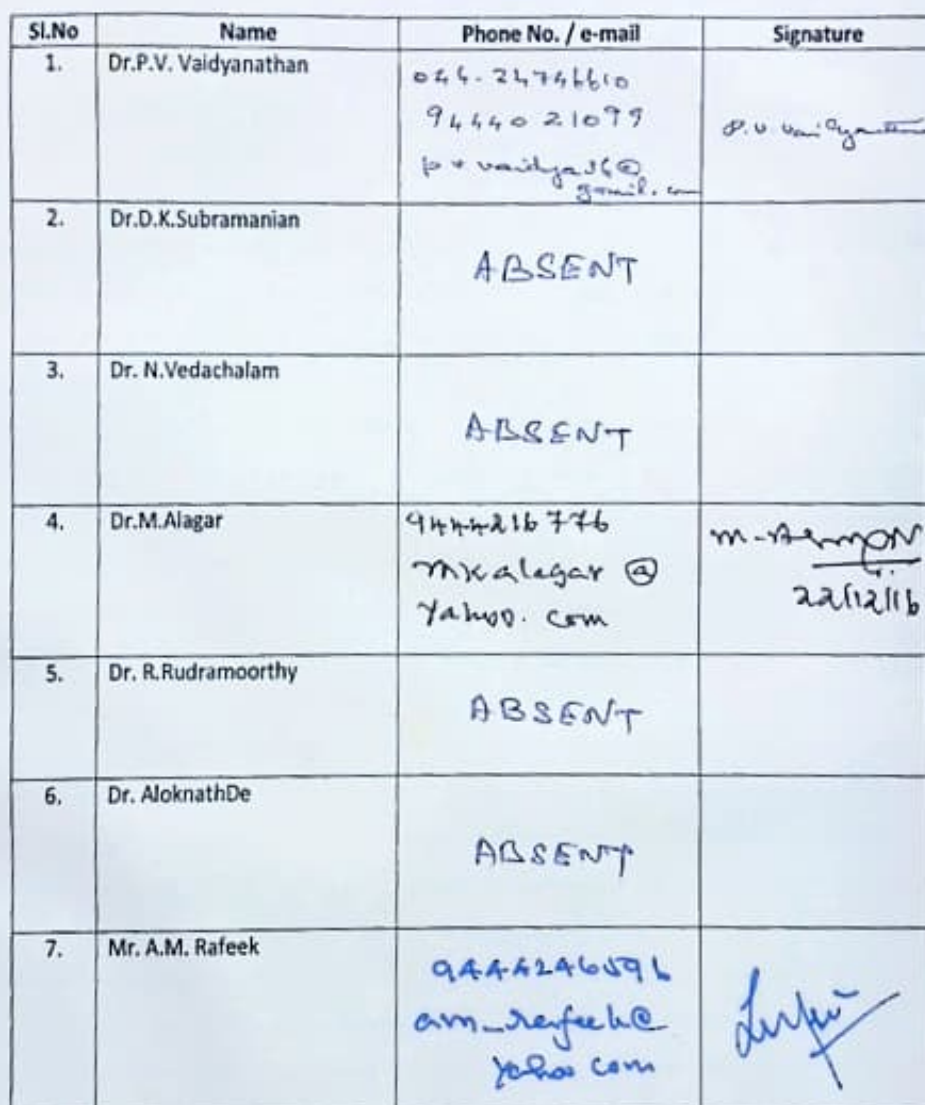 Sl.No Name Phone No. / e-mail Signature
1. Dr.P.V. Vaidyanathan
044-24746610
94440 21099
pvvaidya36@
gmail.com
P.V Vaidyanathan
2. Dr.D.K.Subramanian
ABSENT
3. Dr. N.Vedachalam
ABSENT
4. Dr.M.Alagar
9444216776
mkalagar @
yahoo. com
22/12/16
5. Dr. R.Rudramoorthy
ABSENT
6. Dr. AloknathDe
ABSENT
7. Mr. A.M. Rafeek
9444246596
am_rafeek@
yahoo com